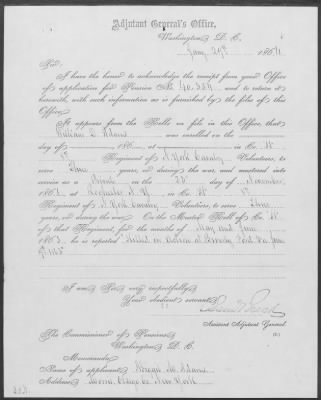 Adjutant General's Office,
Washington, D. C.
Jany 29th 1864
Sir:
I have the honor to acknowledge the receipt from your Office
of application for Pension No. 40,384, and to return it
herewith, with such information as is furnished by the files of this
Office.
It appears from the Rolls on file in this Office, that
William Adams was enrolled on the
day of , 186 , at in Co.
Regiment of N York Cavalry Volunteers, to
serve Three years, or during the war, and mustered into
service as a Private on the day of November,
186 , at Rochester N.Y., in Co.
Regiment of N York Cavalry Volunteers, to serve Three
years, or during the war. On the Muster Roll of Co.
of that Regiment, for the months of May and June,
1863, he is reported Killed in Action at Beverly Ford Va June
9th 1863
I am, Sir, very respectfully,
Your obedient servant,
Assistant Adjutant General.
The Commissioner of Pensions,
Washington, D. C.
Memoranda:
Name of applicant, M. Adams
Address, New York